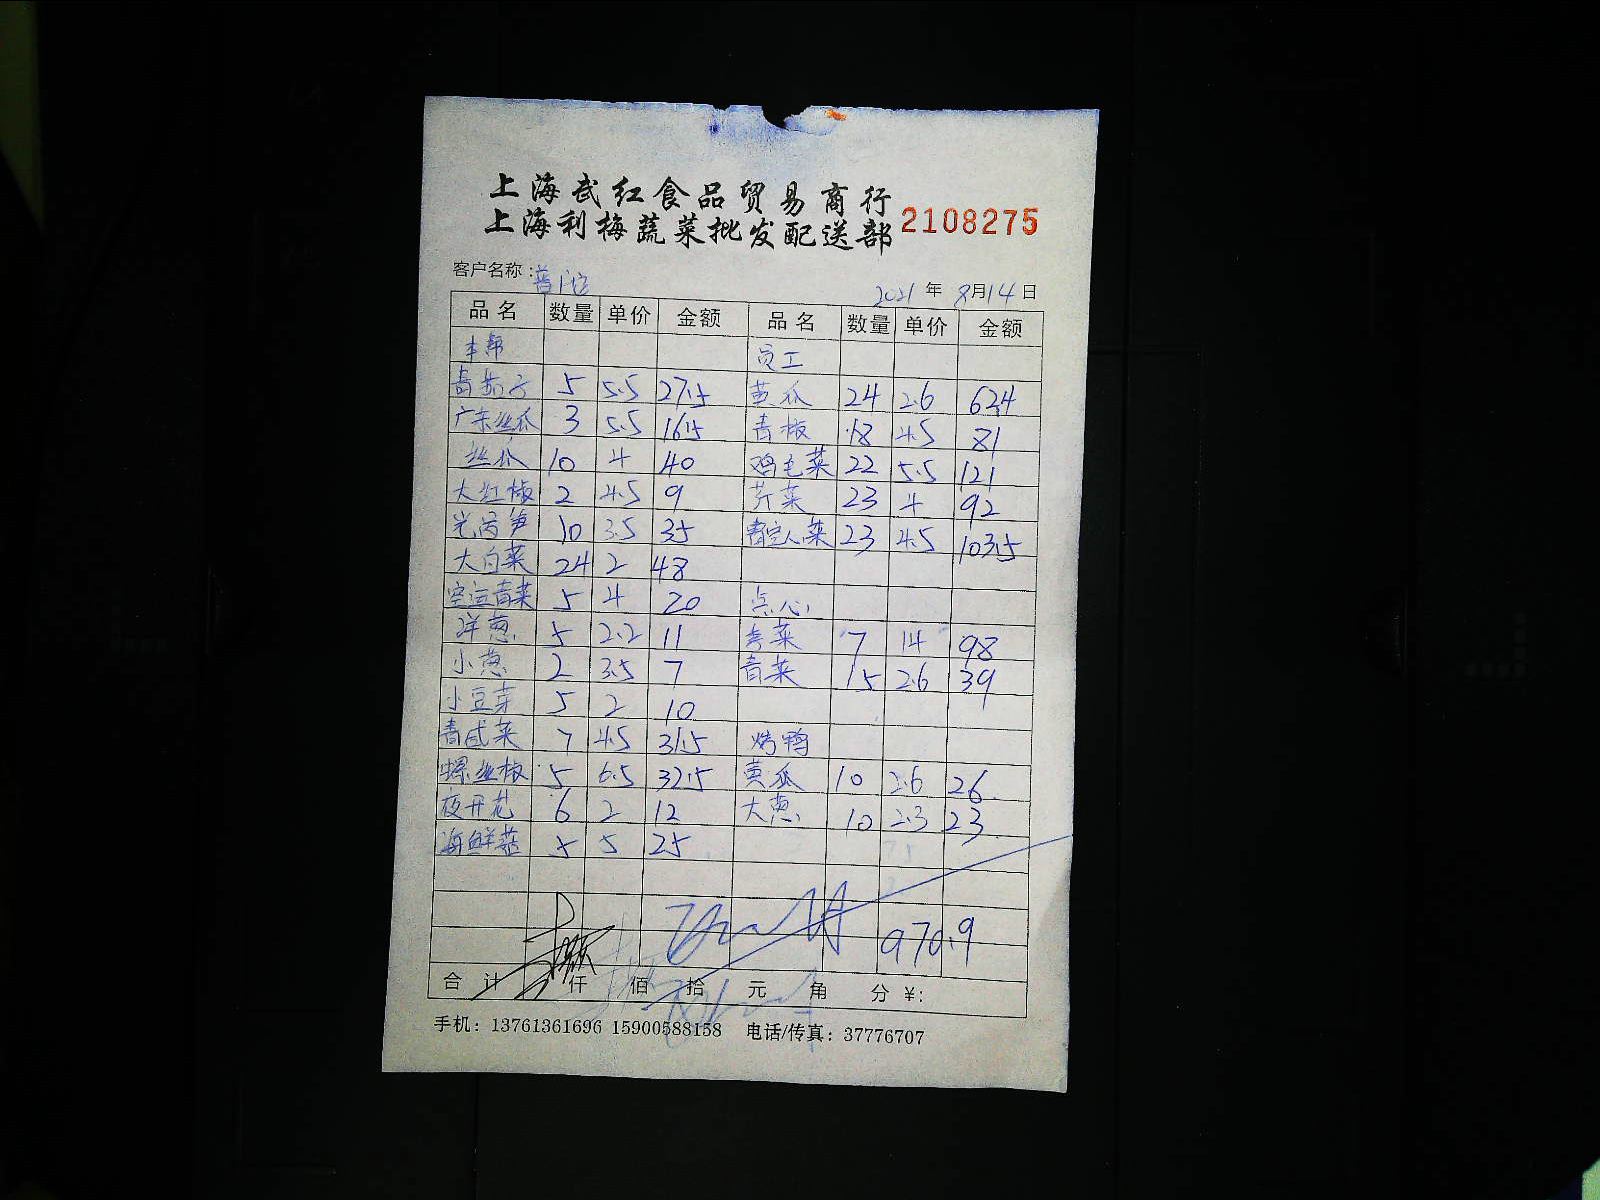 上海武红食品贸易商行
上海利梅蔬菜批发配送部 2108275
客户名称:普陀 2021年8月14日
品名 数量 单价 金额 品名 数量 单价 金额
本帮 员工
青茄子 5 5.5 27.5 黄瓜 24 2.6 62.4
广东丝瓜 3 5.5 16.5 青椒 18 4.5 81
丝瓜 10 4 40 鸡毛菜 22 5.5 121
大红椒 2 4.5 9 芹菜 23 4 92
光莴笋 10 3.5 35 菜 23 4.5 103.5
大白菜 24 2 48
空运青菜 5 4 20 点心
洋葱 5 2.2 11 菜 7 14 98
小葱 2 3.5 7 青菜 15 2.6 39
小豆芽 5 2 10
青咸菜 7 4.5 31.5 烤鸭
螺丝椒 5 6.5 32.5 黄瓜 10 2.6 26
夜开花 6 2 12 大葱 10 2.3 23
海鲜菇 5 5 25
970.9
合计 仟 佰 拾 元 角 分 ¥:
手机: 13761361696 15900588158 电话/传真: 37776707